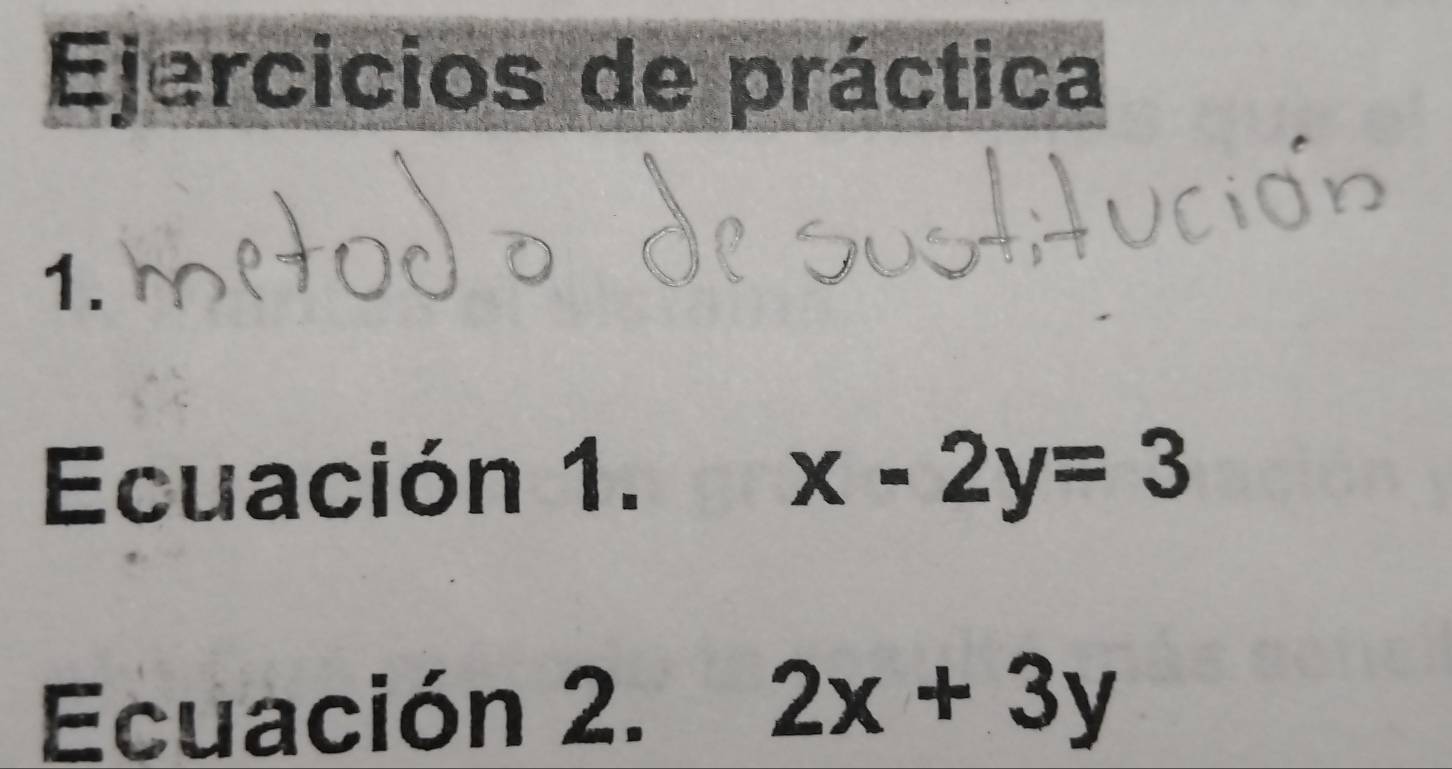 Ejercicios de práctica
1. metodo de sustitución
Ecuación 1. x - 2y= 3
Ecuación 2. 2x + 3y